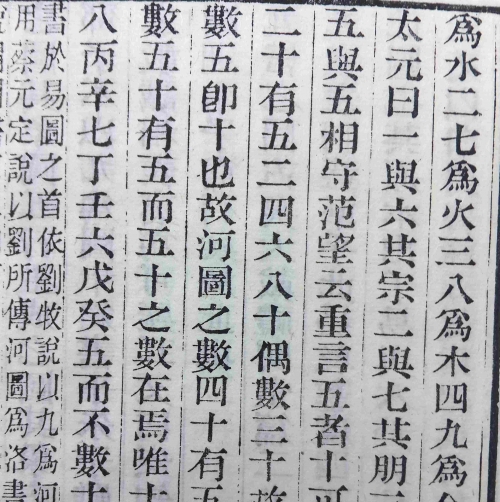 爲水二七爲火三八爲木四九爲
太元曰一與六共宗二與七共朋
五與五相守范望云重言五者十
二十有五二四六八十偶數三十
數五卽十也故河圖之數四十有五
數五十有五而五十之數在焉唯十
八丙辛七丁壬六戊癸五而不數十
書於易圖之首依劉牧說以九爲河
用蔡元定說以劉所傳河圖爲洛書